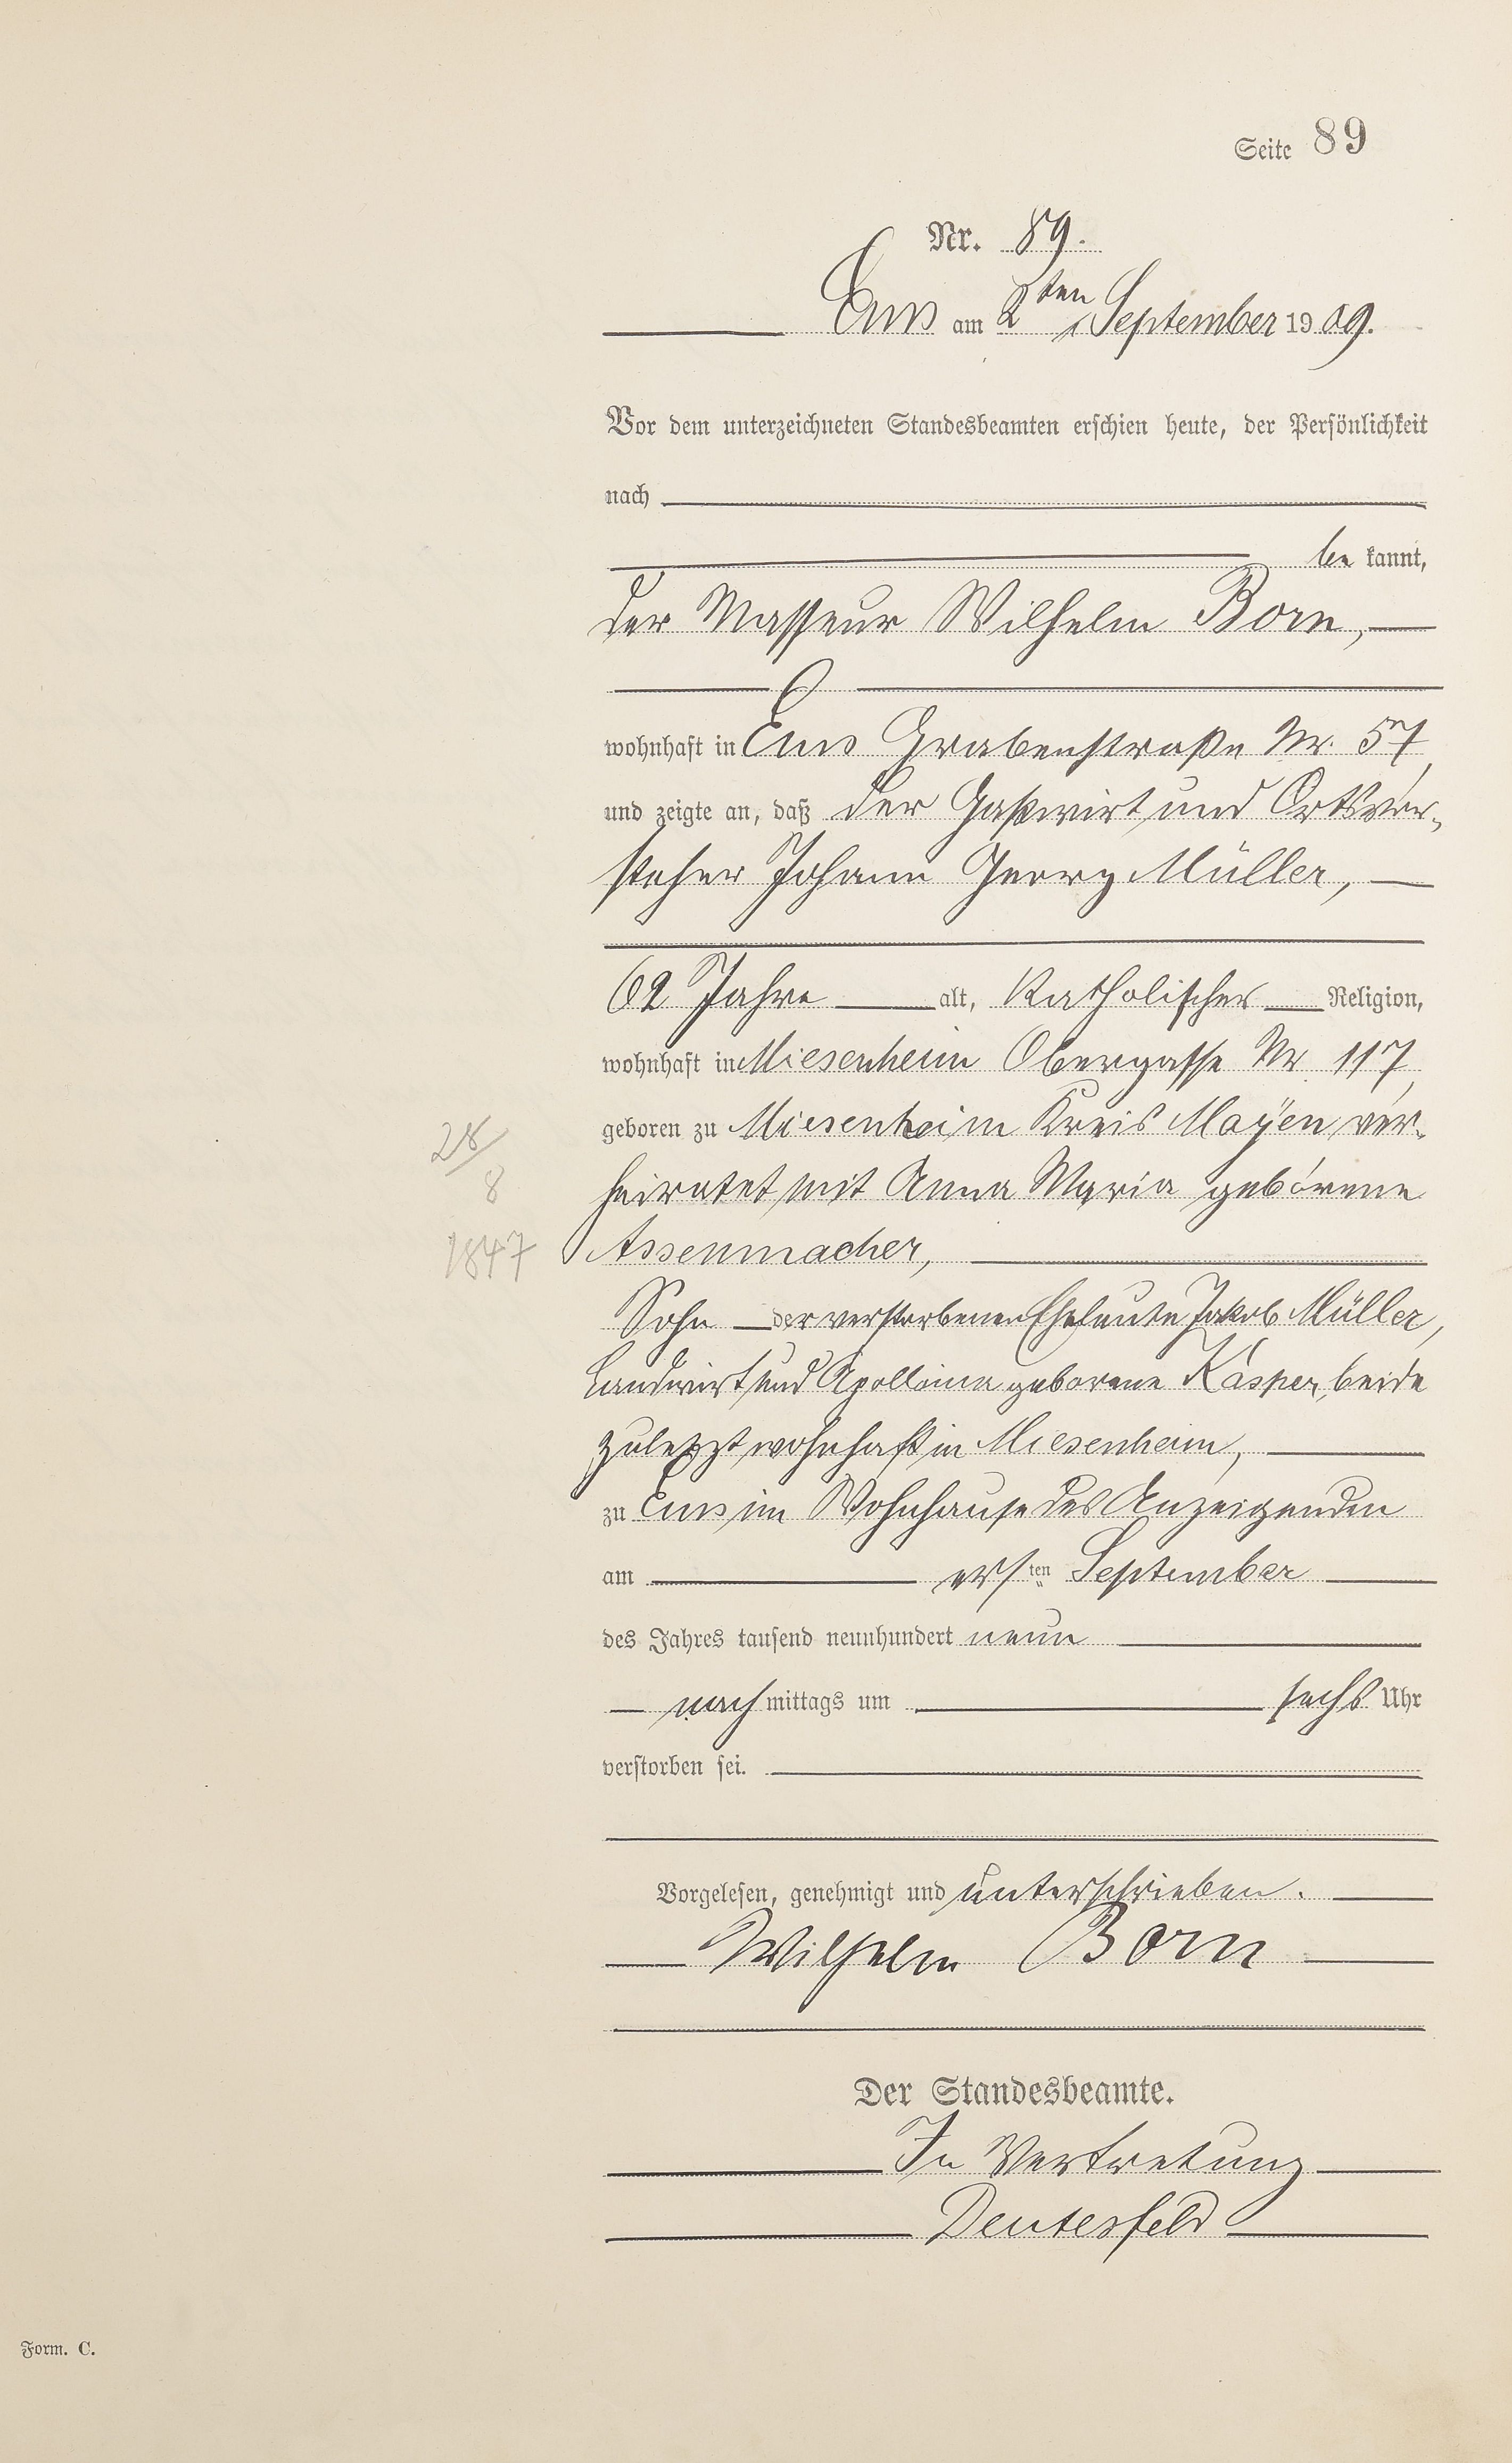 Seite 89
Nr. 89.
Ems am 2ten September 1909.
Vor dem unterzeichneten Standesbeamten erschien heute, der Persönlichkeit
nach
be kannt,
der Masseur Wilhelm Born,
wohnhaft in Ems Grabenstraße Nr. 57,
und zeigte an, daß der Gastwirt und Ortsvor-
steher Johann Georg Müller,
62 Jahre alt, Katholischer Religion,
wohnhaft in Miesenheim Obergasse Nr 117,
geboren zu Miesenheim Kreis Mayen ver-
28/
8
heiratet mit Anna Maria geborene
1847
Assenmacher,
Sohn der verstorbenen Eheleute Jakob Müller,
Landwirt und Apollonia geborene Kasper, beide
zuletzt wohnhaft in Miesenheim,
zu Ems im Wohnhause des Anzeigenden
am ersten September
des Jahres tausend neunhundert neun
nach mittags um sechs Uhr
verstorben sei.
Vorgelesen, genehmigt und unterschrieben.
Wilhelm Born
Der Standesbeamte.
In Vertretung
Deutesfeld
Form. C.